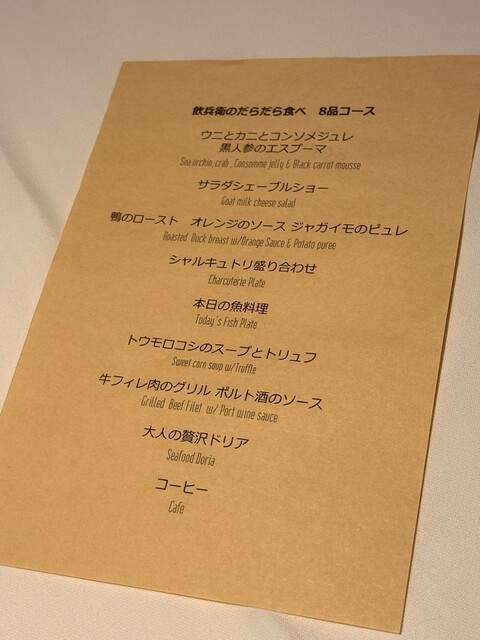 飲兵衛のだらだら食べ　8品コース
ウニとカニとコンソメジュレ
黒人参のエスプーマ
Sea urchin, crab , Consomme jelly & Black carrot mousse
サラダシェーブルショー
Goat milk cheese salad
鴨のロースト　オレンジのソース ジャガイモのピュレ
Roasted Duck breast w/Orange Sauce & Potato puree
シャルキュトリ盛り合わせ
Charcuterie Plate
本日の魚料理
Today's Fish Plate
トウモロコシのスープとトリュフ
Sweet corn soup w/Truffle
牛フィレ肉のグリル ポルト酒のソース
Grilled Beef Filet w/ Port wine sauce
大人の贅沢ドリア
Seafood Doria
コーヒー
Cafe